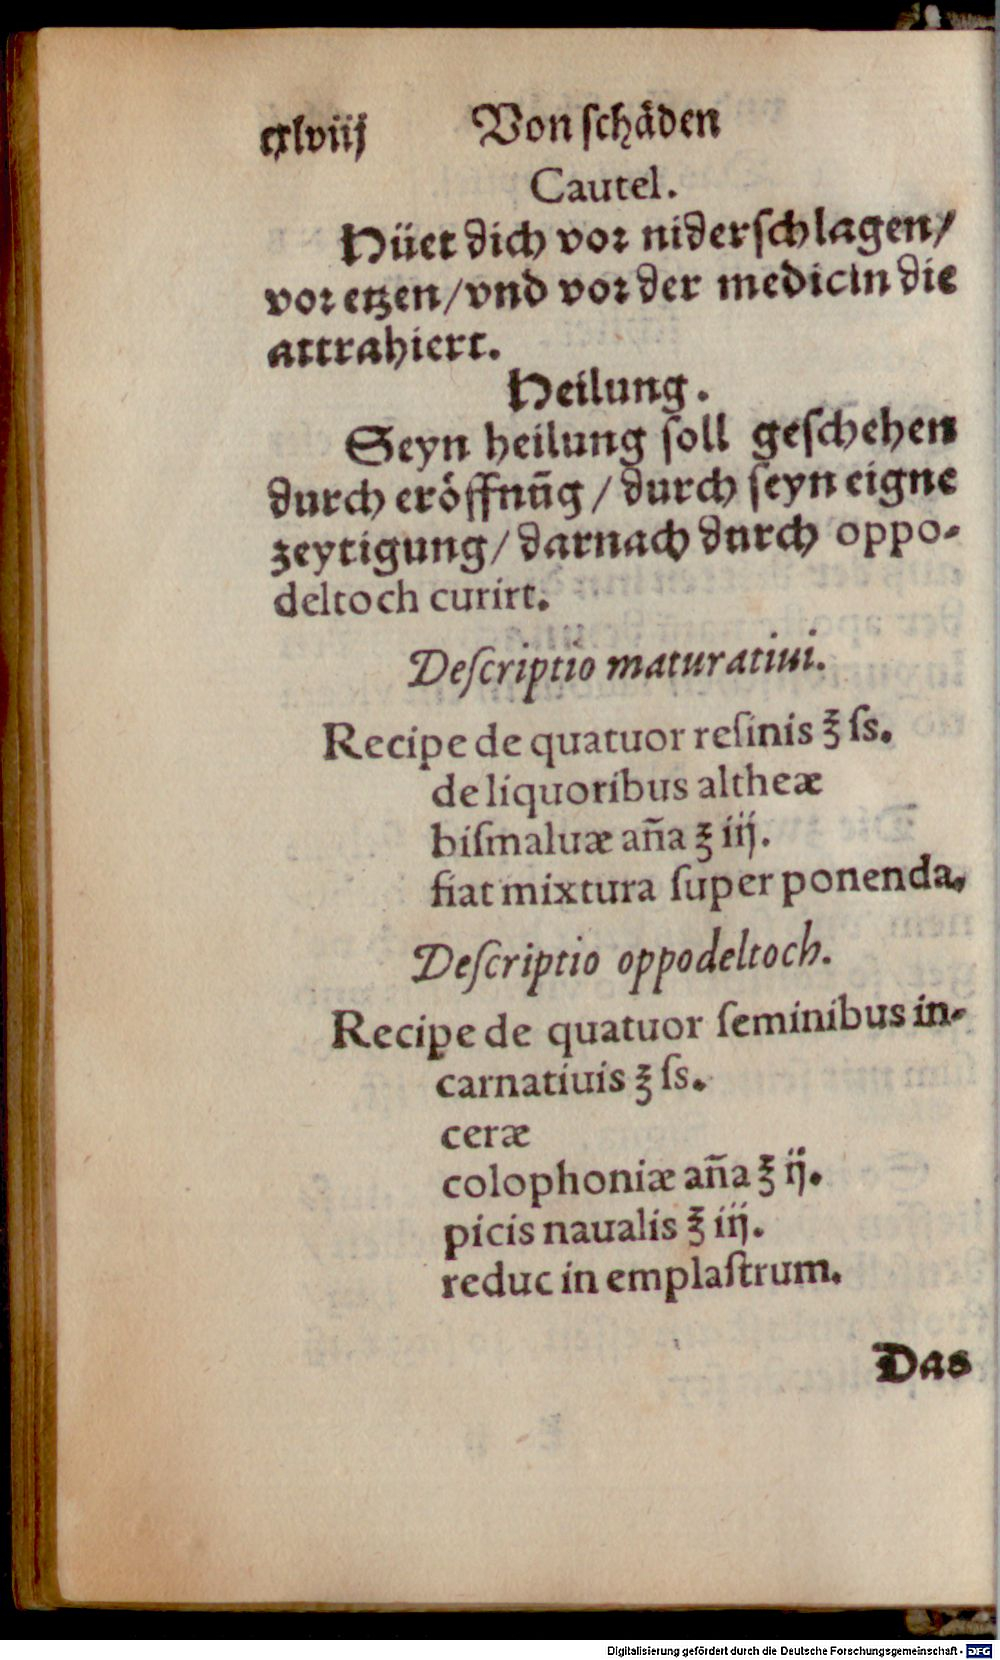 cxlviij Von ſchäden
Cautel.
Hüet dich vor niderſchlagen/
vor etzen/vnd vor der medicin die
attrahiert.
Heilung.
Seyn heilung ſoll geſchehen
durch eröffnūg/durch ſeyn eigne
zeytigung/darnach durch oppo-
deltoch curirt.
Deſcriptio maturatiui.
Recipe de quatuor reſinis ℥ ſs.
de liquoribus altheæ
biſmaluæ aña ℥ iij.
fiat mixtura ſuper ponenda.
Deſcriptio oppodeltoch.
Recipe de quatuor ſeminibus in-
carnatiuis ℥ ſs.
ceræ
colophoniæ aña ℥ ij.
picis naualis ℥ iij.
reduc in emplaſtrum.
Das
Digitalisierung gefördert durch die Deutsche Forschungsgemeinschaft - DFG